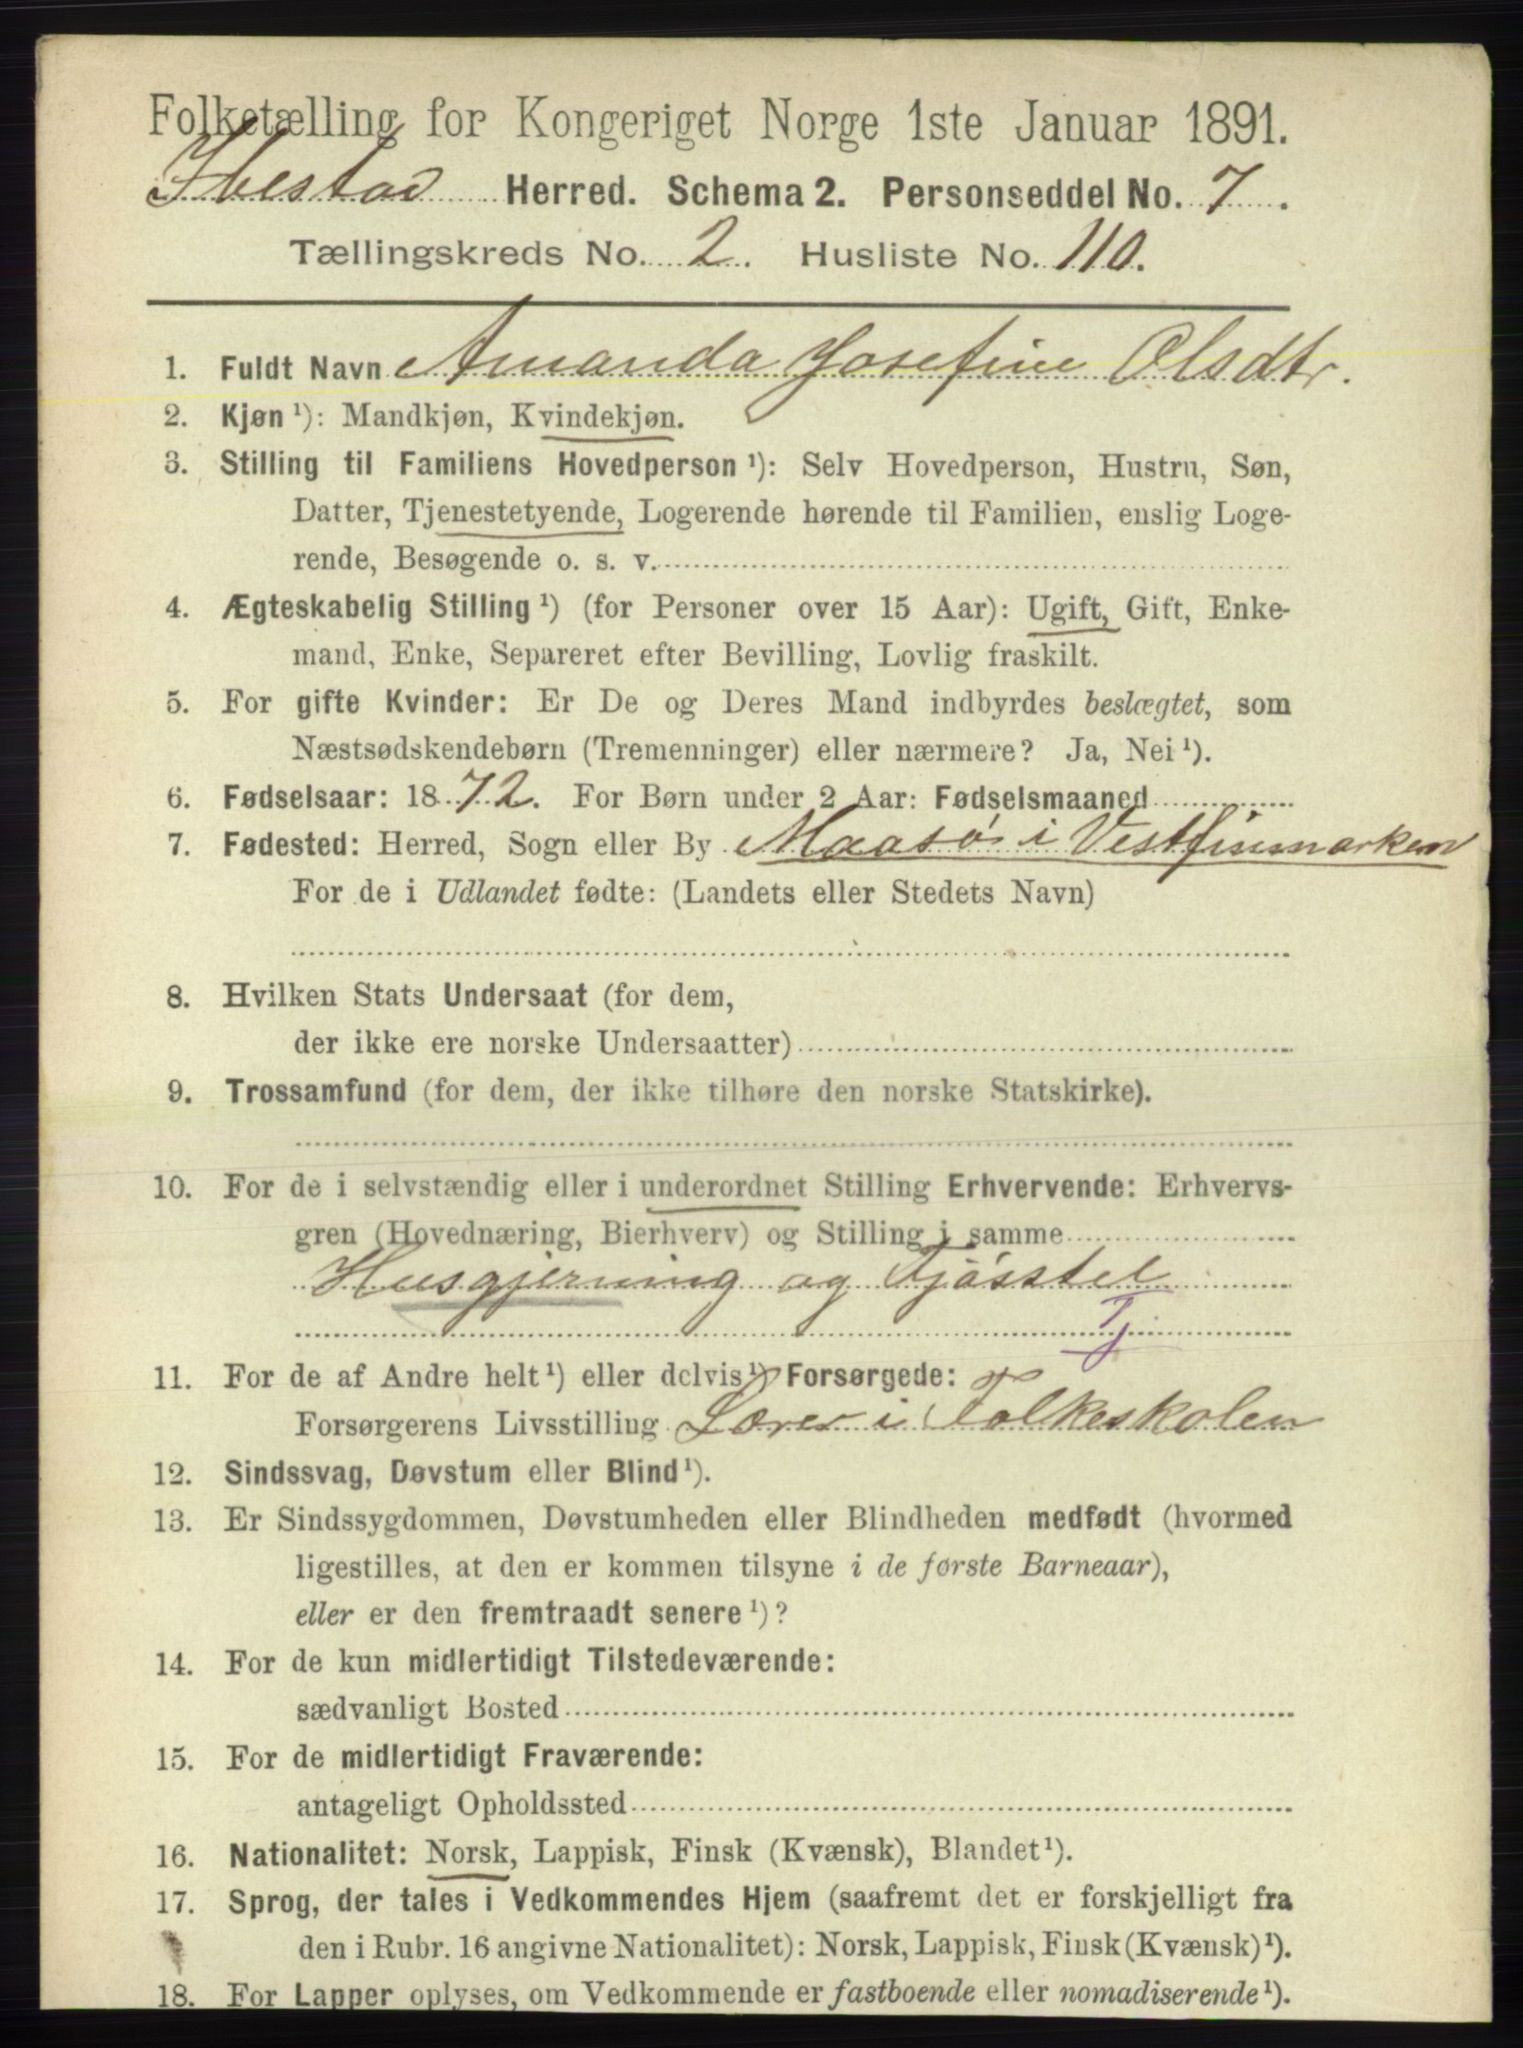 Folketælling for Kongeriget Norge 1ste Januar 1891.
Ibestad Herred. Schema 2. Personseddel No. 7.
Tællingskreds No. 2. Husliste No. 110.
1. Fuldt Navn Amanda Josefine Olsdtr.
2. Kjøn ¹): Mandkjøn, Kvindekjøn.
3. Stilling til Familiens Hovedperson ¹): Selv Hovedperson, Hustru, Søn,
Datter, Tjenestetyende, Logerende hørende til Familien, enslig Loge-
rende, Besøgende o. s. v.
4. Ægteskabelig Stilling ¹) (for Personer over 15 Aar): Ugift, Gift, Enke-
mand, Enke, Separeret efter Bevilling, Lovlig fraskilt.
5. For gifte Kvinder: Er De og Deres Mand indbyrdes beslægtet, som
Næstsødskendebørn (Tremenninger) eller nærmere? Ja, Nei ¹).
6. Fødselsaar: 1872. For Børn under 2 Aar: Fødselsmaaned
7. Fødested: Herred, Sogn eller By Maasø i Vestfinmarken
For de i Udlandet fødte: (Landets eller Stedets Navn)
8. Hvilken Stats Undersaat (for dem,
der ikke ere norske Undersaatter)
9. Trossamfund (for dem, der ikke tilhøre den norske Statskirke).
10. For de i selvstændig eller i underordnet Stilling Erhvervende: Erhvervs-
gren (Hovednæring, Bierhverv) og Stilling i samme
Husgjerning og Fjøsstel
Tj
11. For de af Andre helt ¹) eller delvis ¹) Forsørgede:
Forsørgerens Livsstilling Lærer i Folkeskolen
12. Sindssvag, Døvstum eller Blind ¹).
13. Er Sindssygdommen, Døvstumheden eller Blindheden medfødt (hvormed
ligestilles, at den er kommen tilsyne i de første Barneaar),
eller er den fremtraadt senere ¹)?
14. For de kun midlertidigt Tilstedeværende:
sædvanligt Bosted
15. For de midlertidigt Fraværende:
antageligt Opholdssted
16. Nationalitet: Norsk, Lappisk, Finsk (Kvænsk), Blandet ¹).
17. Sprog, der tales i Vedkommendes Hjem (saafremt det er forskjelligt fra
den i Rubr. 16 angivne Nationalitet): Norsk, Lappisk, Finsk (Kvænsk) ¹).
18. For Lapper oplyses, om Vedkommende er fastboende eller nomadiserende ¹).